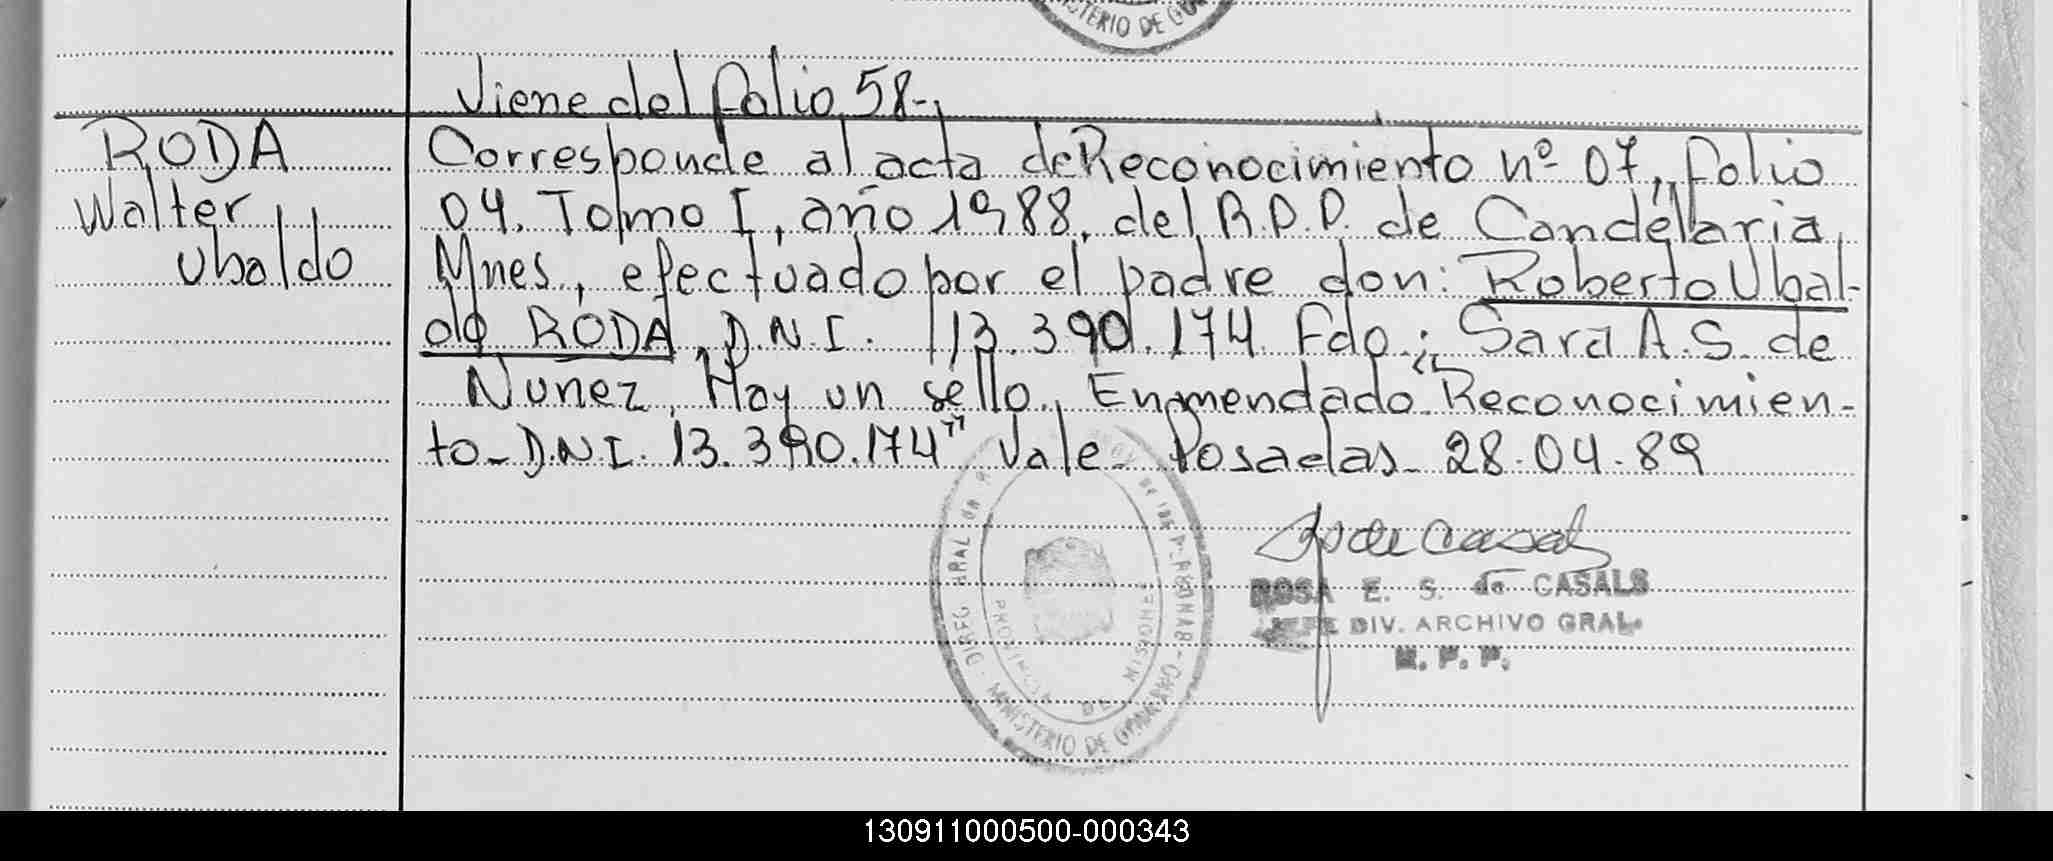 MINISTERIO DE GO
Viene del folio 58-
RODA
Walter
Ubaldo
Corresponde al acta de Reconocimiento nº 07, folio
04. Tomo I, año 1988, del R.P.P. de Candelaria,
Mnes., efectuado por el padre don: Roberto Ubal-
do RODA, D.N.I. 13.390.174. Fdo.: Sara A.S. de
Nunez, Hay un sello. Enmendado "Reconocimien-
to- D.N.I. 13.390.174" Vale- Posadas- 28.04.89
MINISTERIO DE GOBIERNO
PROVINCIA DE MISIONES
ROSA E. S. de CASALS
JEFE DIV. ARCHIVO GRAL.
R. P. P.
130911000500-000343